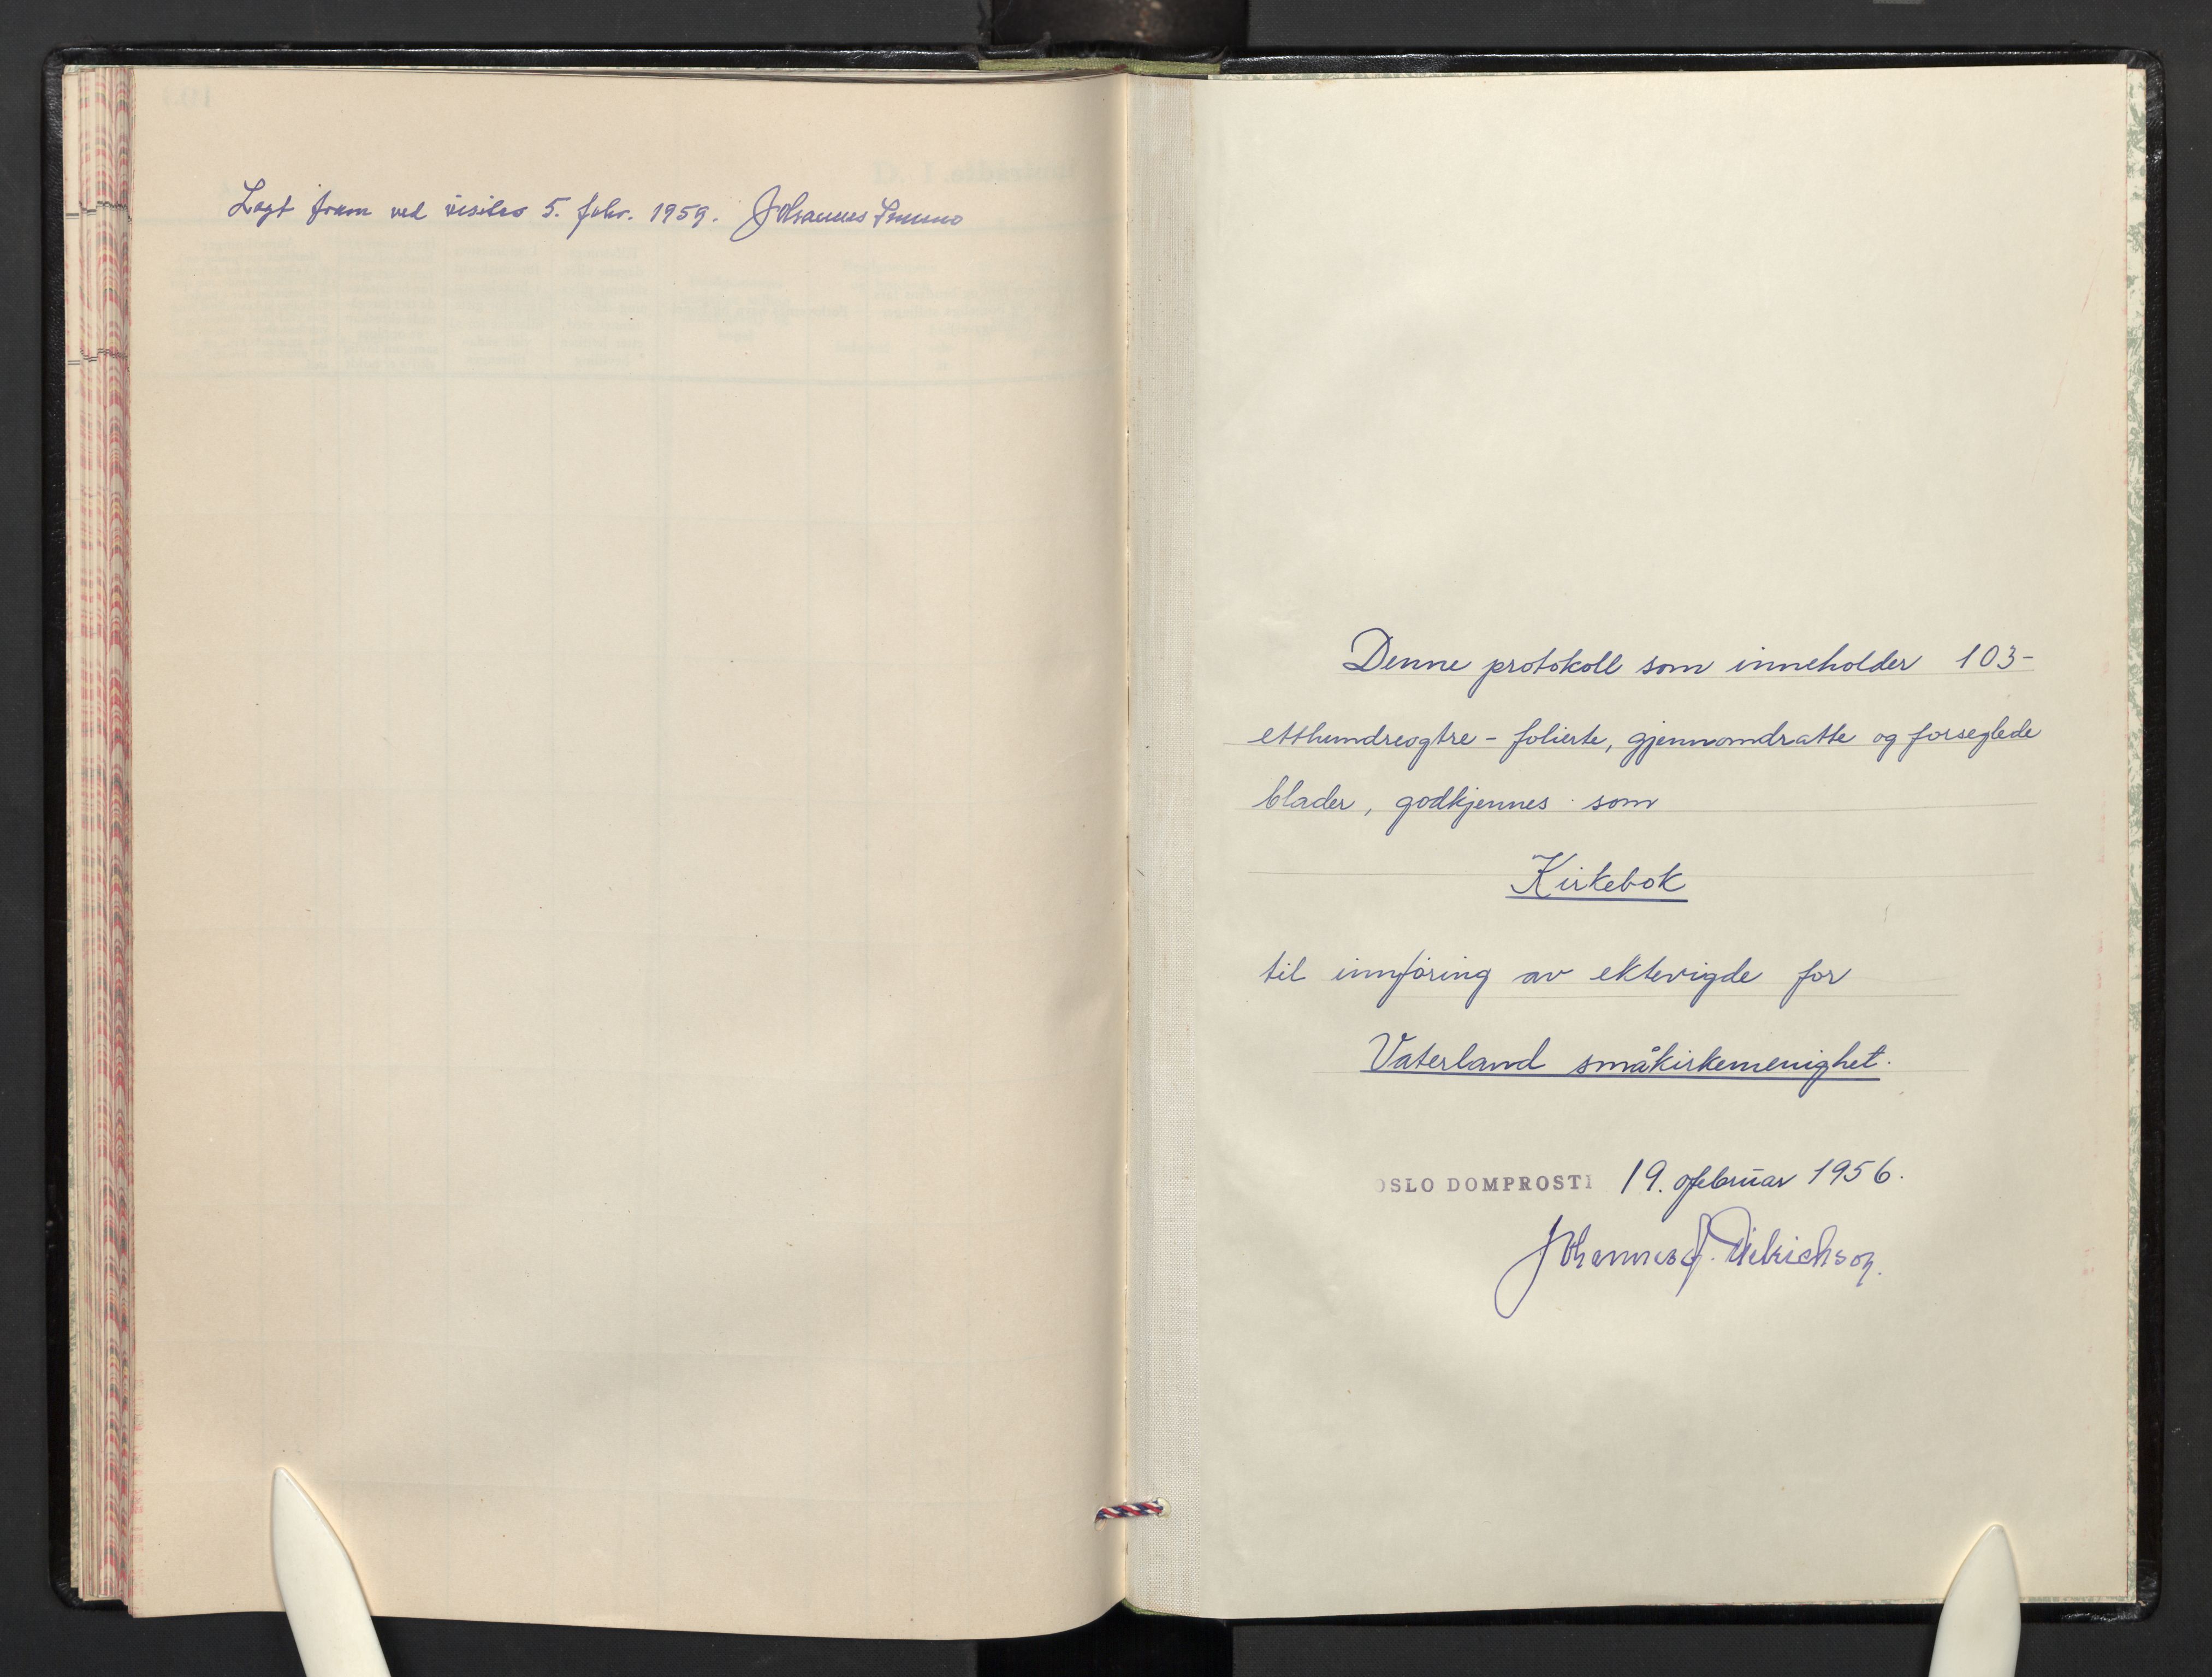 Lagt fram ved visitas 5. febr. 1959. Johannes Smemo
Denne protokoll som inneholder 103-
etthundreogtre - folierte, gjennomdratte og forseglede
blader, godkjennes som
Kirkebok
til innføring av ektevigde for
Vaterland småkirkemenighet.
OSLO DOMPROSTI 19. februar 1956.
Johannes